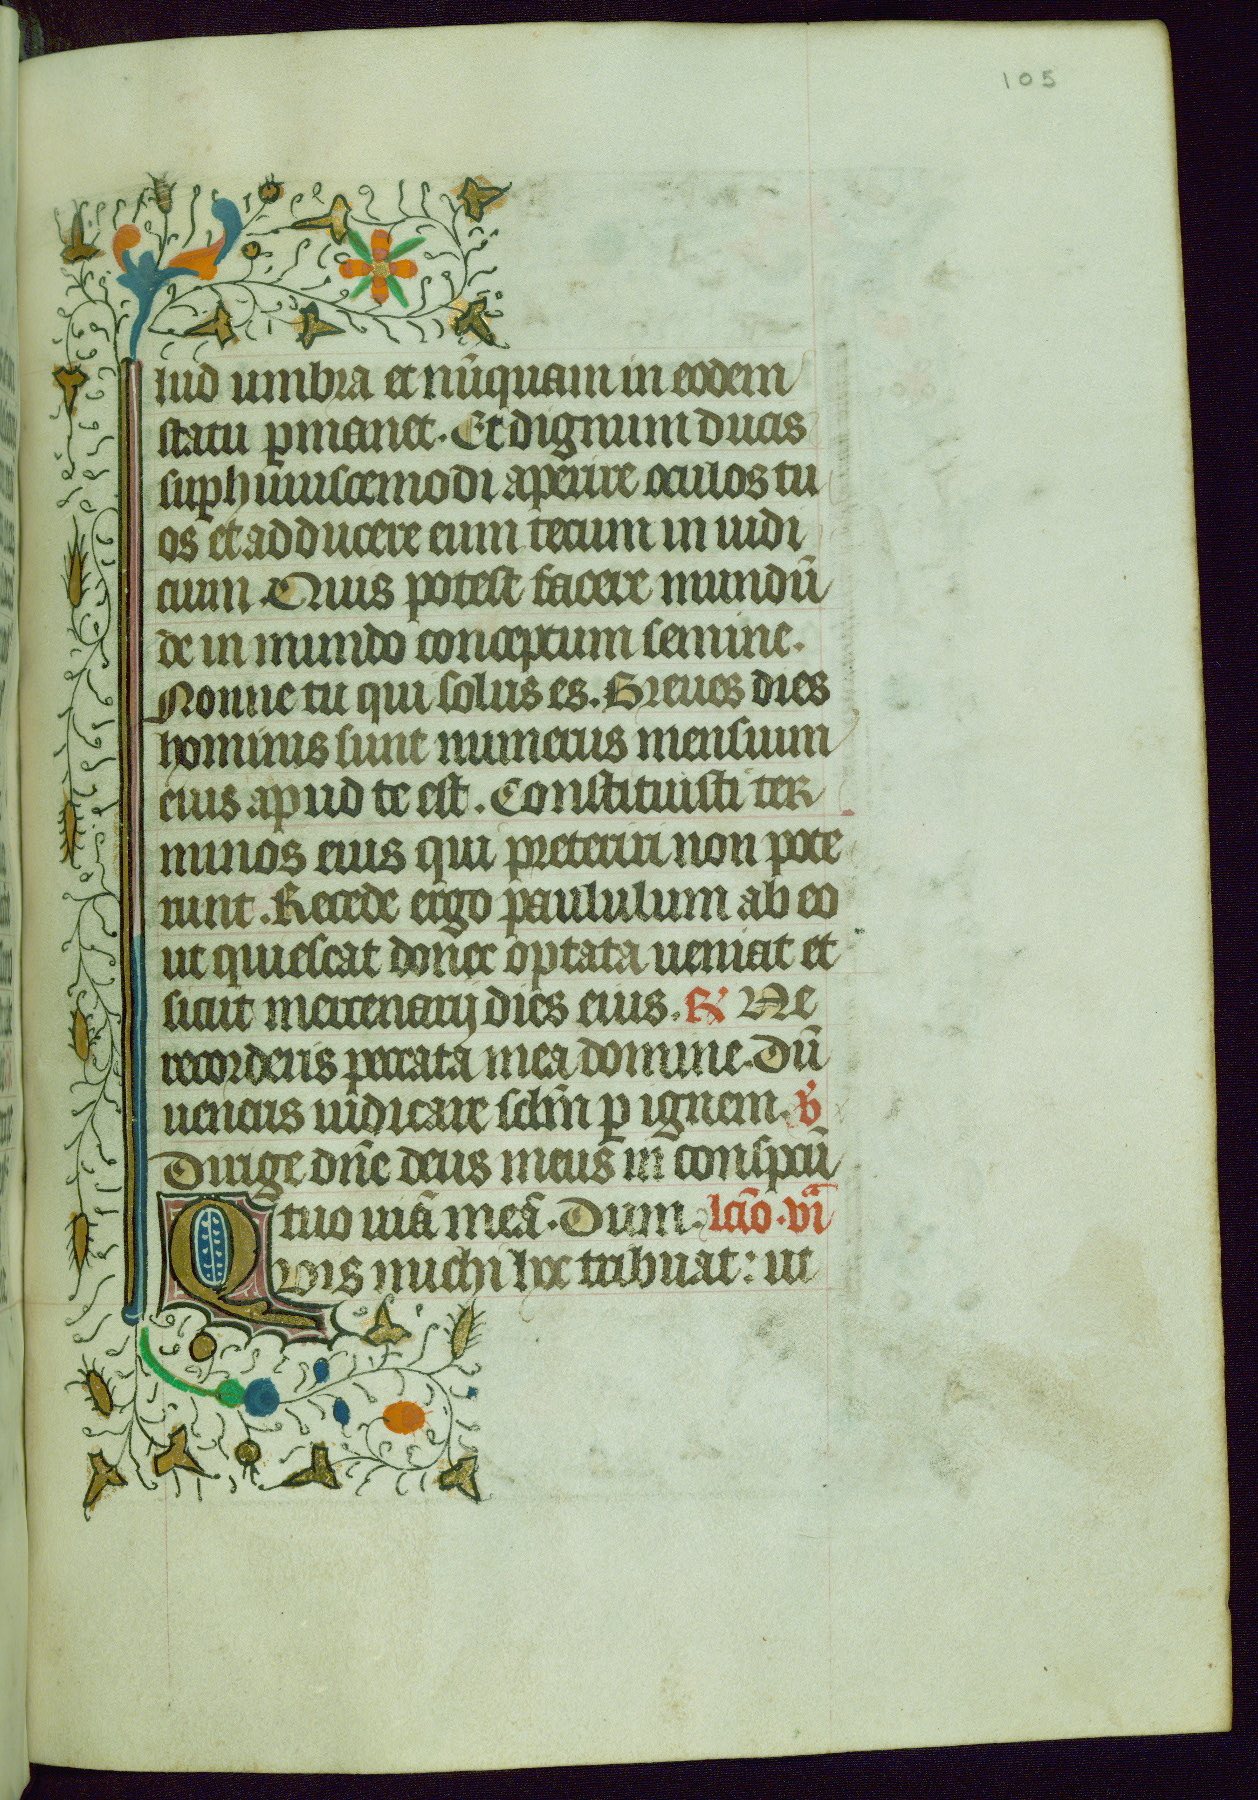 105
lud umbra et nūquam in eodem
statu ꝑmanet. Et dignum ducis
suꝑ huiuscemodi aperire oculos tu
os et adducere eum tecum in iudi
cium Quis potest facere mundū
de in mundo conceptum semine.
Nonne tu qui solus es. Breues dies
hominis sunt numerus mensium
eius apud te est. Constituisti ter
minos eius qui preteriri non pote
runt. Recede ergo paululum ab eo
ut quiescat donec optata ueniat et
sicut mercenarij dies eius. ℟ Ne
recorderis peccata mea domine. Dū
ueneris iudicare sclm̄ ꝑ ignem. ℣
Dirige dn̄e deus meus in conspcū
tuo uiā meā. Dum. lcīo. vi
Quis michi hoc tribuat: ut